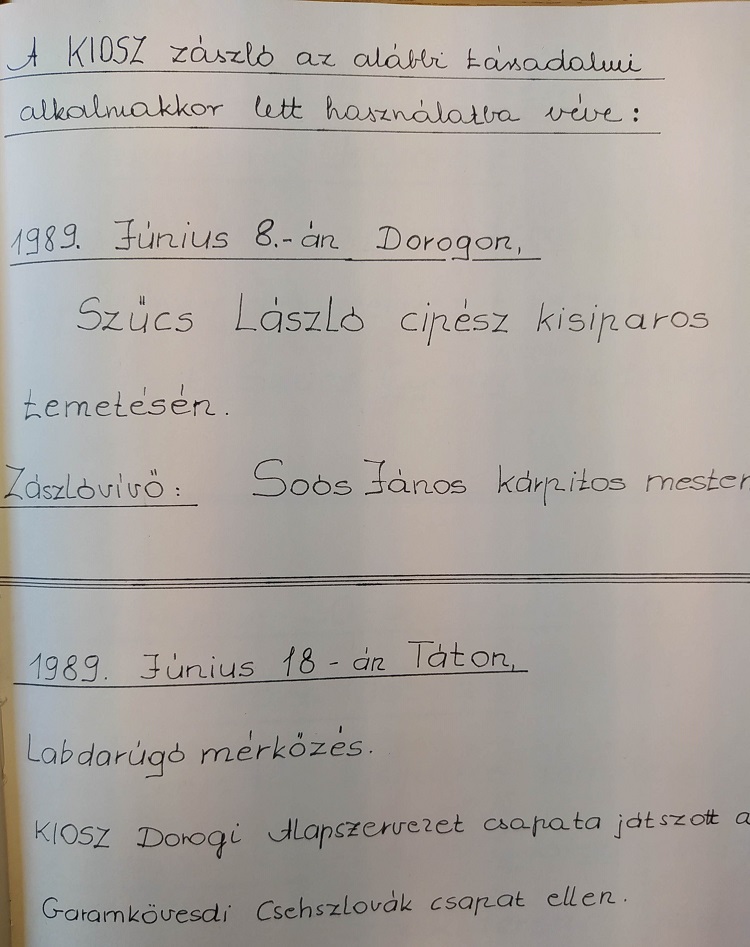 A KIOSZ zászló az alábbi társadalmi
alkalmakkor lett használatba véve:
1989. Június 8.-án Dorogon,
Szűcs László cipész kisiparos
temetésén.
Zászlóvivő: Soós János kárpitos mester
1989. Június 18-án Táton,
Labdarúgó mérkőzés.
KIOSZ Dorogi Alapszervezet csapata játszott a
Garamkövesdi Csehszlovák csapat ellen.